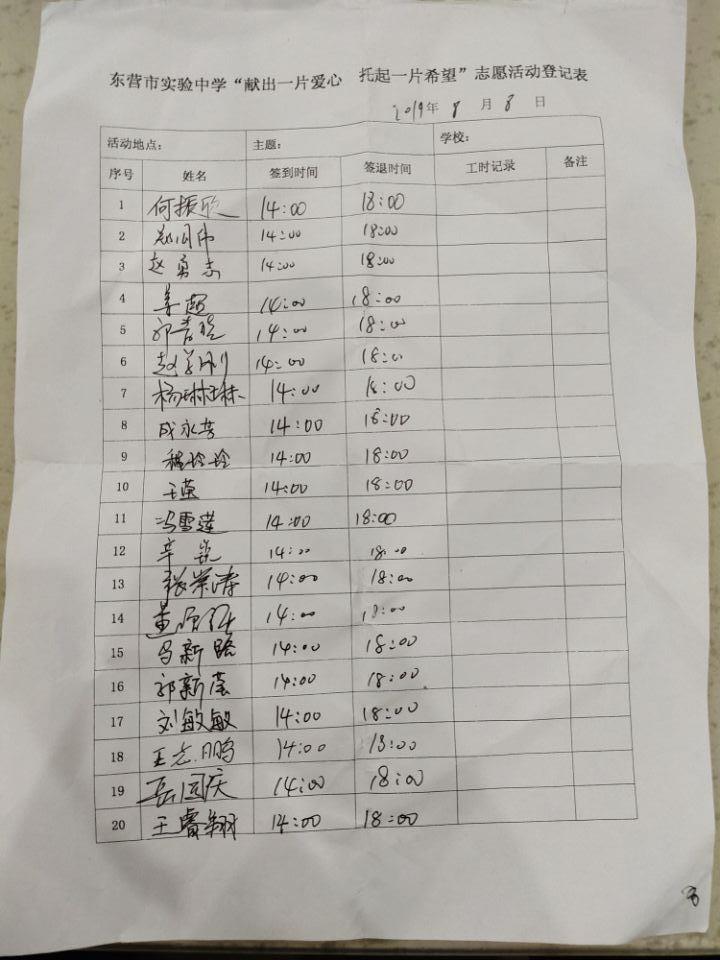 东营市实验中学“献出一片爱心　托起一片希望”志愿活动登记表
2019年 8 月 8 日
活动地点： 主题： 学校：
序号 姓名 签到时间 签退时间 工时记录 备注
1 何振欣 14:00 18:00
2 郑国伟 14:00 18:00
3 赵勇志 14:00 18:00
4 姜超 14:00 18:00
5 14:00 18:00
6 14:00 18:00
7 杨琳琳 14:00 18:00
8 成永芳 14:00 18:00
9 程玲玲 14:00 18:00
10 王荣 14:00 18:00
11 冯雪莲 14:00 18:00
12 14:00 18:00
13 张崇涛 14:00 18:00
14 14:00 18:00
15 马新路 14:00 18:00
16 郭新莹 14:00 18:00
17 刘敏敏 14:00 18:00
18 王志鹏 14:00 18:00
19 岳国庆 14:00 18:00
20 王睿翔 14:00 18:00